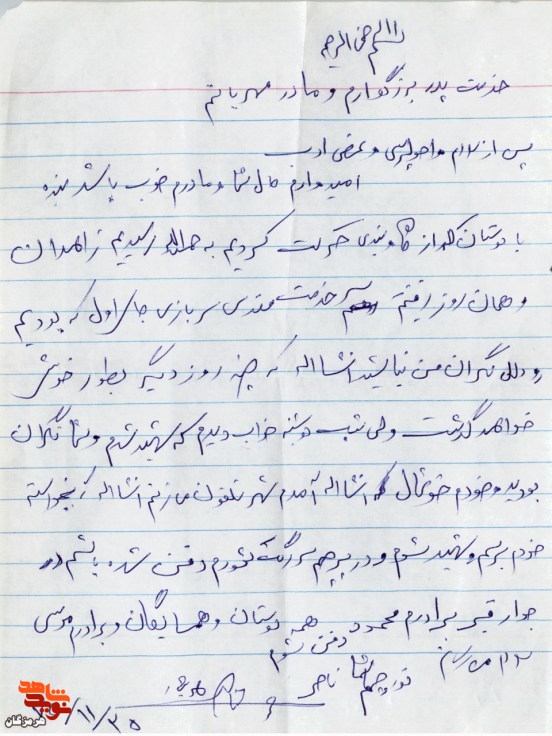 بسم الله الرحمن الرحیم
خدمت پدر بزرگوارم و مادر مهربانم
پس از سلام و احوالپرسی و عرض ادب
امیدوارم حال شما و مادرم خوب باشد بنده
با دوستان که از گاوبندی حرکت کردیم به حمدالله رسیدیم زاهدان
و همان روز رفتیم سر خدمت مقدس سربازی جای اول که بودیم
نگران من نباشید انشااله که چند روز دیگر بطور خوشی
خواهد گذشت ولی شب دوشنبه خواب دیدم که شهید شدم و شما نگران
بودید و خودم خوشحال انشااله آمدم شهر تلفون می زنم انشااله که بخواسته
خودم برسم و شهید شوم و در پرچم سه رنگ کشورم دفن شده باشم در
جوار قبر برادرم محمود دفن شوم
همه دوستان و همسایگان و برادرم موسی
سلام می رسانم
نور چشم شما ناصر
شاهد
نوید
هرمزگان